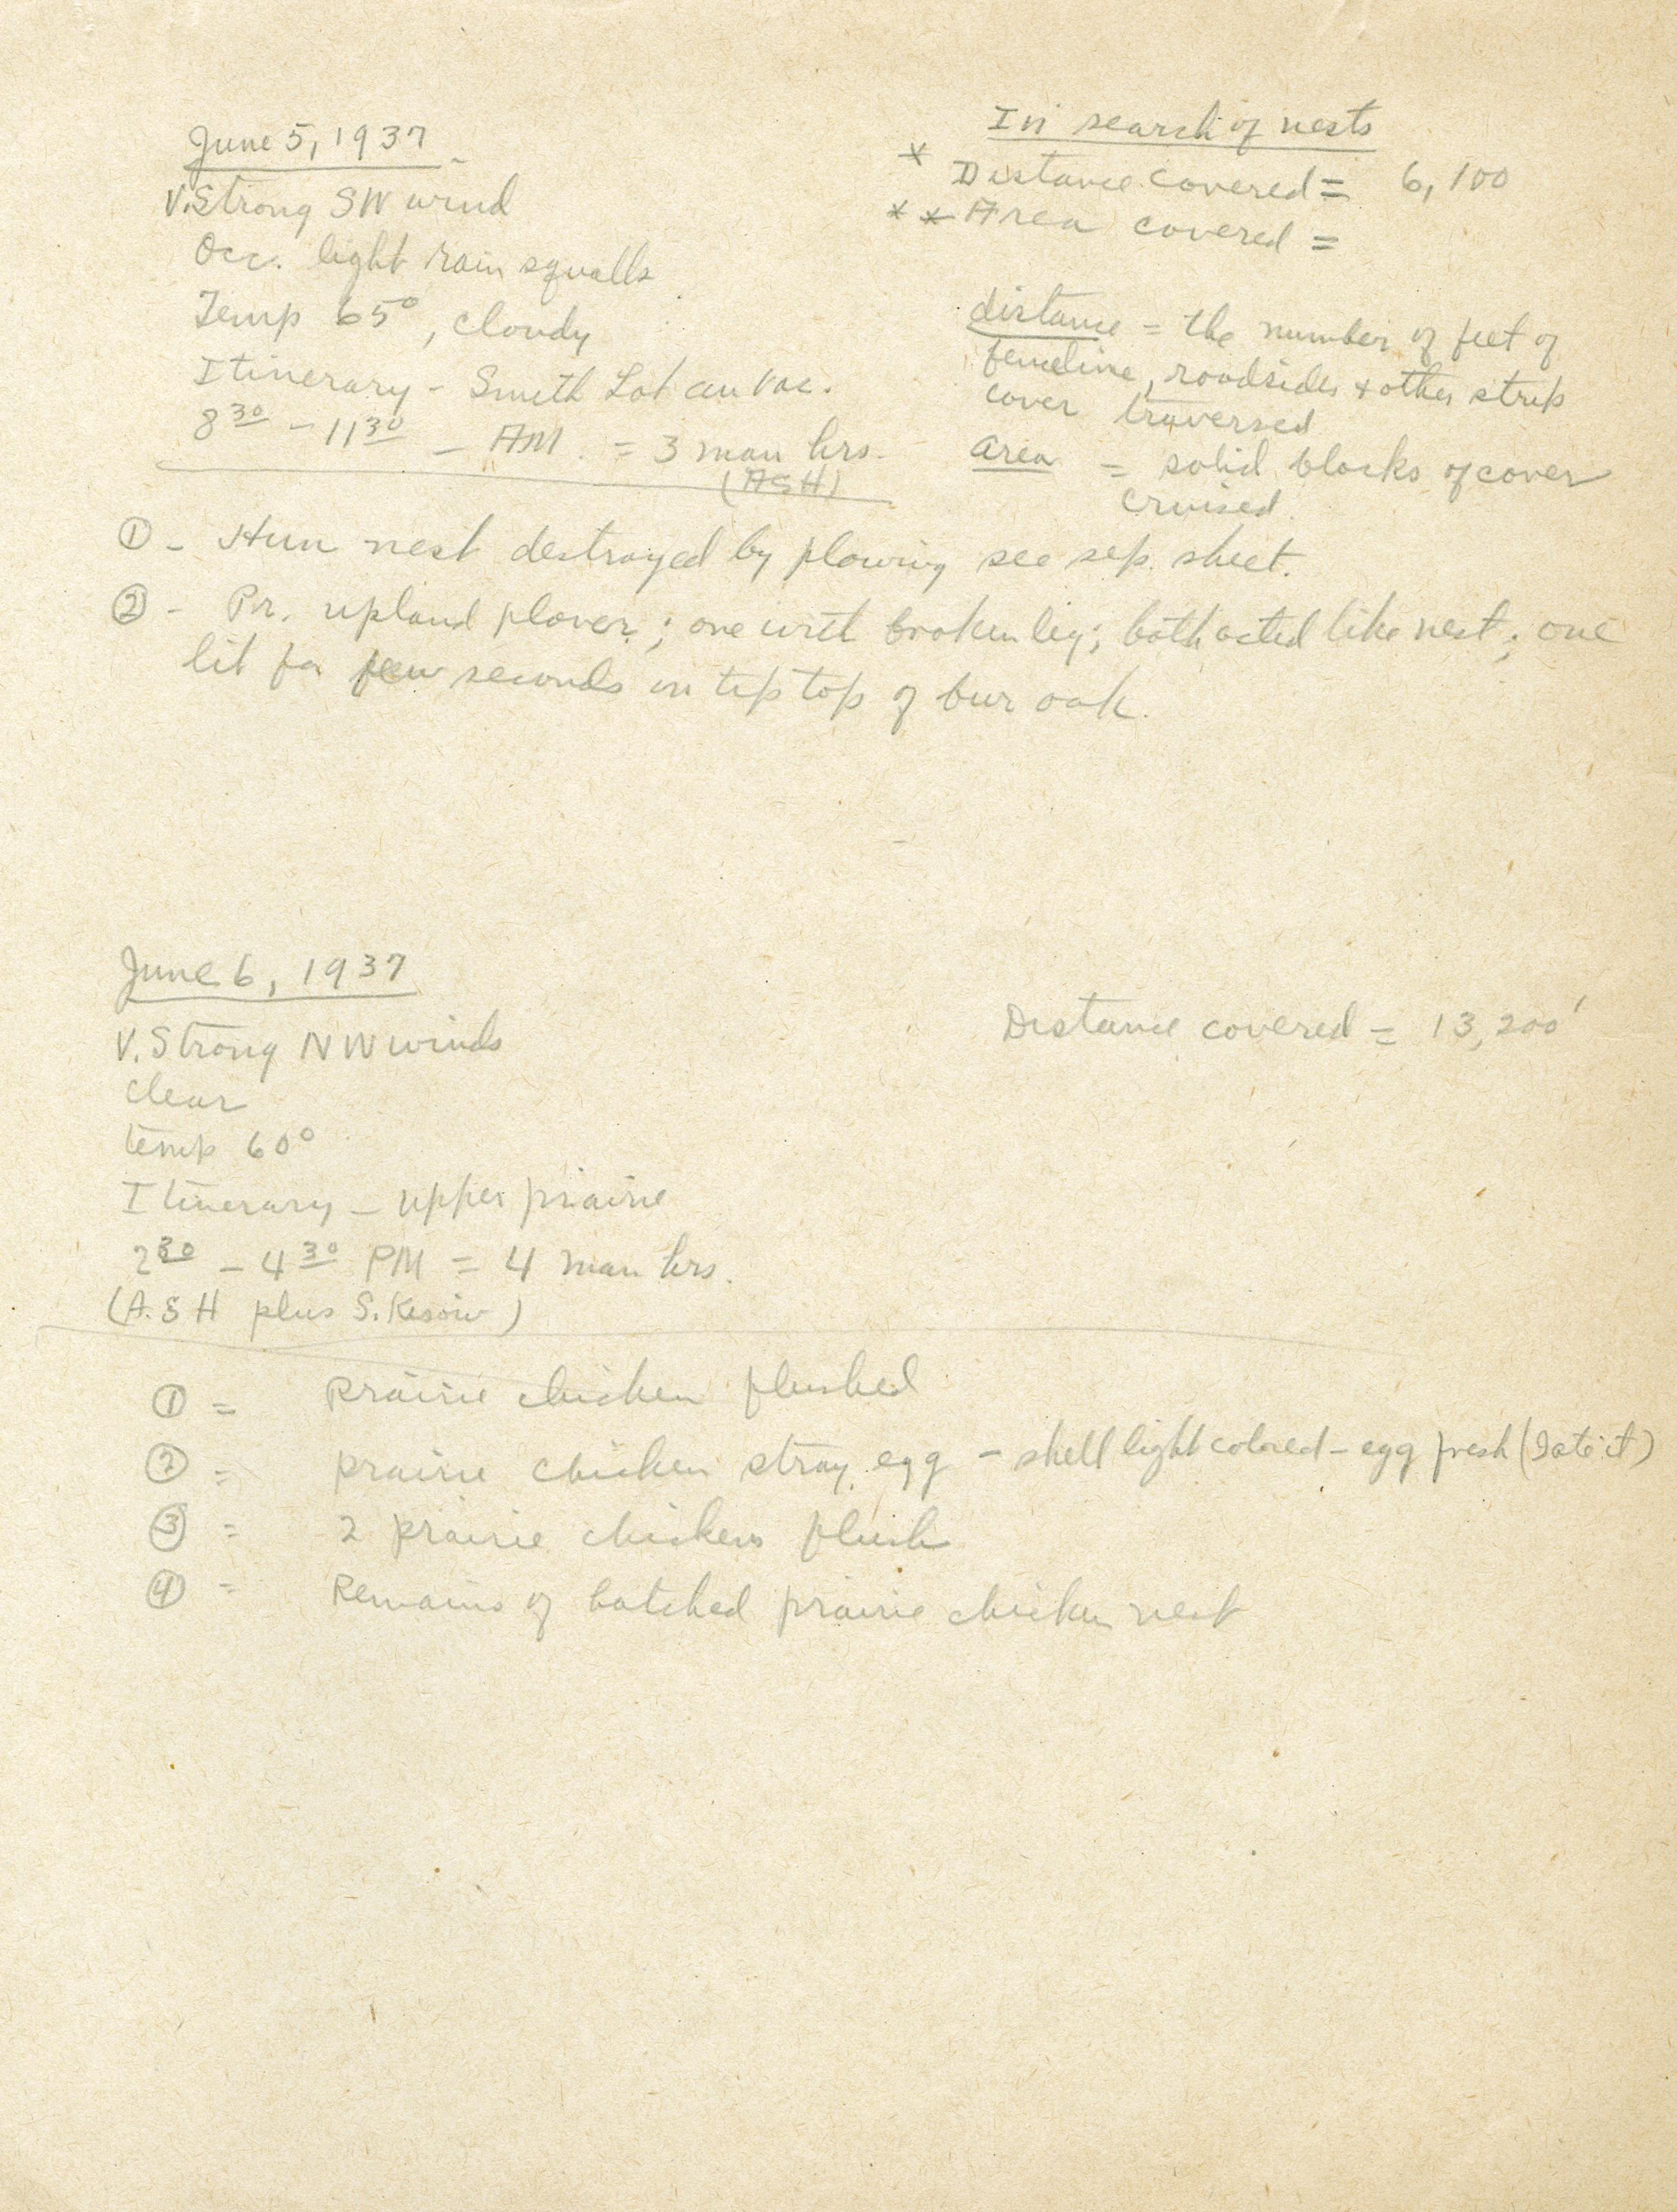 June 5, 1937
V. Strong SW wind
Occ. light rain squalls
Temp 65°, cloudy
Itinerary - Smith Lot an vac.
8 30 - 11 30 - AM. = 3 man hrs.
(ASH)
In search of nests
* Distance covered = 6,100
** Area covered =
distance = the number of feet of
fenceline, roadsides & other strip
cover traversed
area = solid blocks of cover
cruised.
① - Hun nest destroyed by plowing see sep. sheet.
② - Pr. upland plover; one with broken leg; both acted like nest; one
lit for few seconds on tip top of bur oak.
June 6, 1937
V. Strong NW winds
clear
temp 60°
Itinerary - upper prairie
2 30 - 4 30 PM = 4 man hrs.
(A.S H plus S.
Distance covered = 13,200'
① = prairie chicken flushed
② = prairie chicken stray egg - shell light colored - egg fresh (I ate it)
③ = 2 prairie chickens flush
④ = Remains of hatched prairie chicken nest